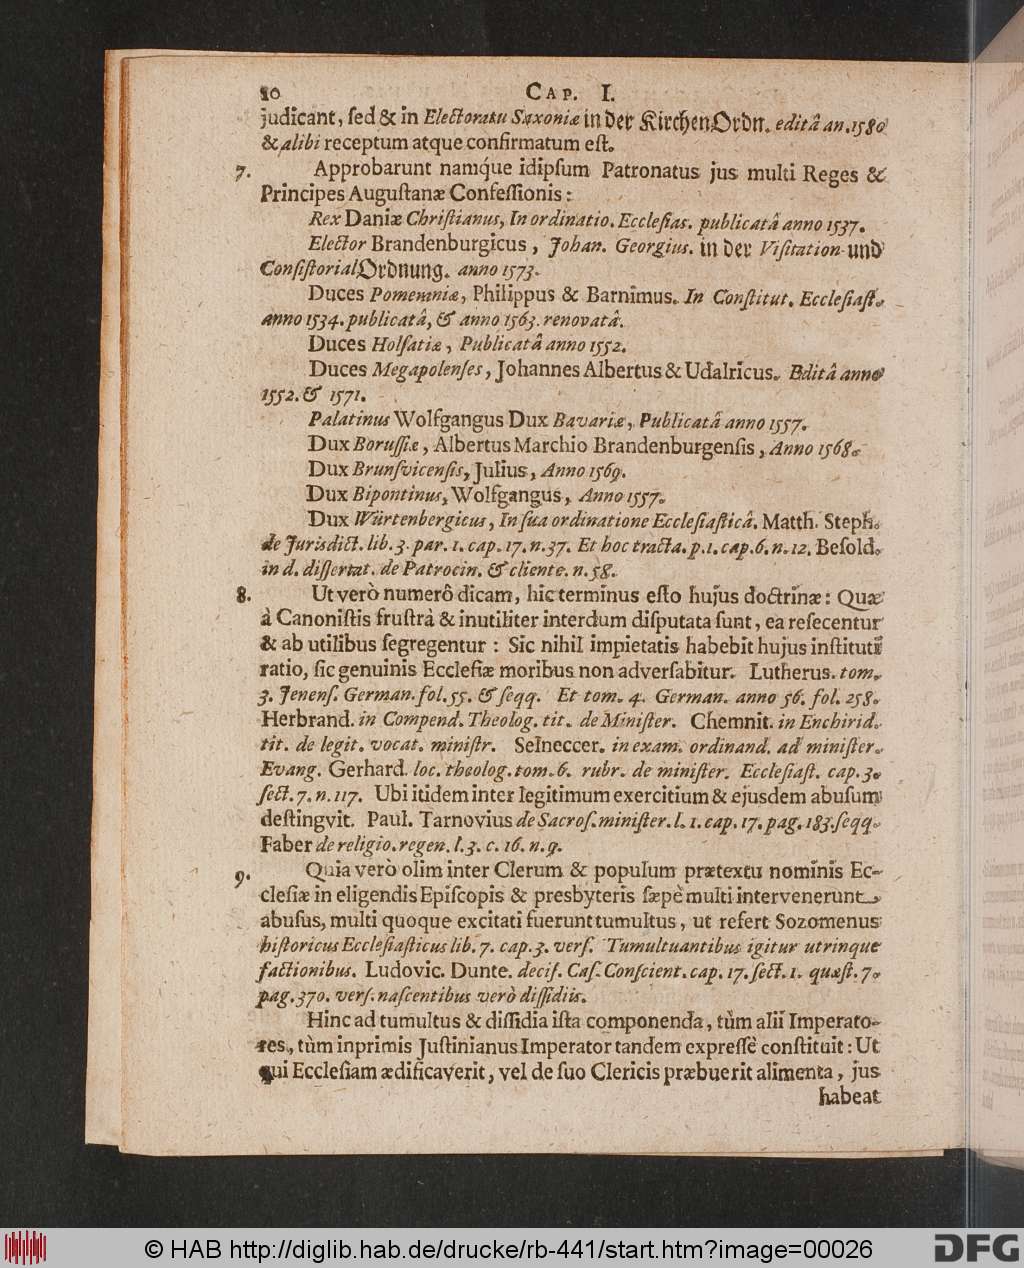 10 CAP. I.
judicant, ſed & in Electoratu Saxoniæ in der KirchenOrdn. editâ an. 1580
& alibi receptum atque confirmatum eſt.
7. Approbarunt namq́ue idipſum Patronatus jus multi Reges &
Principes Auguſtanæ Confeſſionis:
Rex Daniæ Chriſtianus, In ordinatio. Eccleſias. publicatâ anno 1537.
Elector Brandenburgicus, Johan. Georgius. in der Viſitation- und
ConſiſtorialOrdnung. anno 1573.
Duces Pomemniæ, Philippus & Barnimus. In Conſtitut. Eccleſiaſt.
anno 1534. publicatâ, & anno 1563. renovatâ.
Duces Holſatiæ, Publicatâ anno 1552.
Duces Megapolenſes, Johannes Albertus & Udalricus. Editâ anno
1552. & 1571.
Palatinus Wolfgangus Dux Bavariæ, Publicatâ anno 1557.
Dux Boruſſiæ, Albertus Marchio Brandenburgenſis, Anno 1568.
Dux Brunſvicenſis, Julius, Anno 1569.
Dux Bipontinus, Wolfgangus, Anno 1557.
Dux Würtenbergicus, In ſua ordinatione Eccleſiaſticâ. Matth. Steph.
de Jurisdict. lib. 3. par. 1. cap. 17. n. 37. Et hoc tracta. p. 1. cap. 6. n. 12. Beſold.
in d. diſſertat. de Patrocin. & cliente. n. 58.
8. Ut verò numerô dicam, hic terminus eſto hujus doctrinæ: Quæ
à Canoniſtis fruſtrà & inutiliter interdum diſputata ſunt, ea reſecentur
& ab utilibus ſegregentur: Sic nihil impietatis habebit hujus inſtituti
ratio, ſic genuinis Eccleſiæ moribus non adverſabitur. Lutherus. tom.
3. Jenenſ. German. fol. 55. & ſeqq. Et tom. 4. German. anno 56. fol. 258.
Herbrand. in Compend. Theolog. tit. de Miniſter. Chemnit. in Enchirid.
tit. de legit. vocat. miniſtr. Selneccer. in exam. ordinand. ad miniſter.
Evang. Gerhard. loc. theolog. tom. 6. rubr. de miniſter. Eccleſiaſt. cap. 3.
ſect. 7. n. 117. Ubi itidem inter legitimum exercitium & ejusdem abuſum
deſtingvit. Paul. Tarnovius de Sacroſ. miniſter. l. 1. cap. 17. pag. 183. ſeqq.
Faber de religio. regen. l. 3. c. 16. n. 9.
9. Quia verò olim inter Clerum & populum prætextu nominis Ec-
cleſiæ in eligendis Epiſcopis & presbyteris ſæpè multi intervenerunt
abuſus, multi quoque excitati fuerunt tumultus, ut refert Sozomenus
hiſtoricus Eccleſiaſticus lib. 7. cap. 3. verſ. Tumultuantibus igitur utrinque
factionibus. Ludovic. Dunte. deciſ. Caſ. Conſcient. cap. 17. ſect. 1. quæſt. 7.
pag. 370. verſ. naſcentibus verò diſſidiis.
Hinc ad tumultus & diſſidia iſta componenda, tùm alii Imperato-
res, tùm inprimis Juſtinianus Imperator tandem expreſſè conſtituit: Ut
qui Eccleſiam ædificaverit, vel de ſuo Clericis præbuerit alimenta, jus
habeat
© HAB http://diglib.hab.de/drucke/rb-441/start.htm?image=00026
DFG